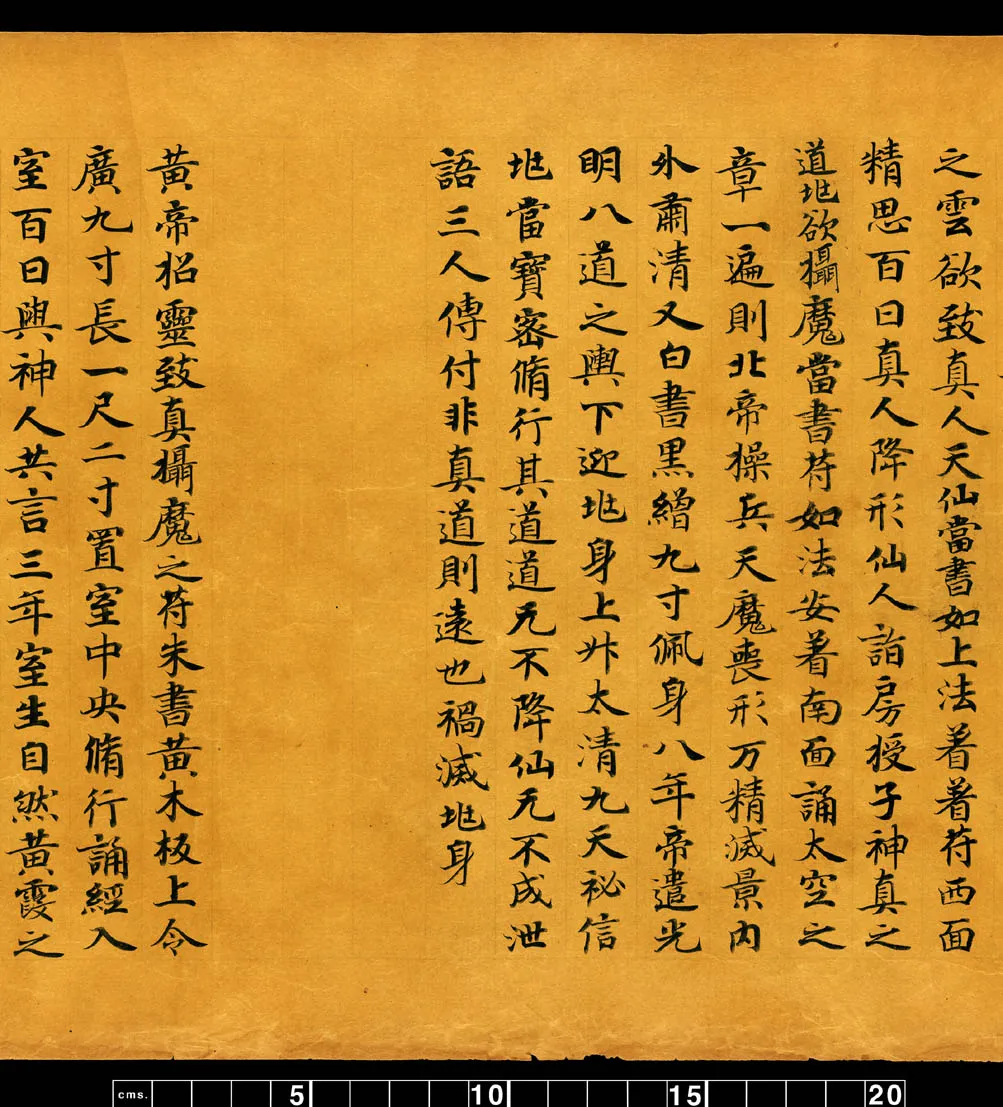 之雲欲致真人天仙當書如上法着着苻西面
精思百日真人降形仙人詣房授子神真之
道地欲攝魔當書苻如法安着南面誦太空之
章一遍則北帝操兵天魔喪形万精滅景内
外肅清又白書黑繒九寸佩身八年帝遣光
明八道之輿下迎地身上升太清九天祕信
地當寶密脩行其道道无不降仙无不成泄
語三人傳付非真道則遠也禍滅地身
黃帝招靈致真攝魔之苻朱書黃木板上令
廣九寸長一尺二寸置室中央脩行誦經入
室百日與神人共言三年室生自然黃霞之
cms. 5 10 15 20